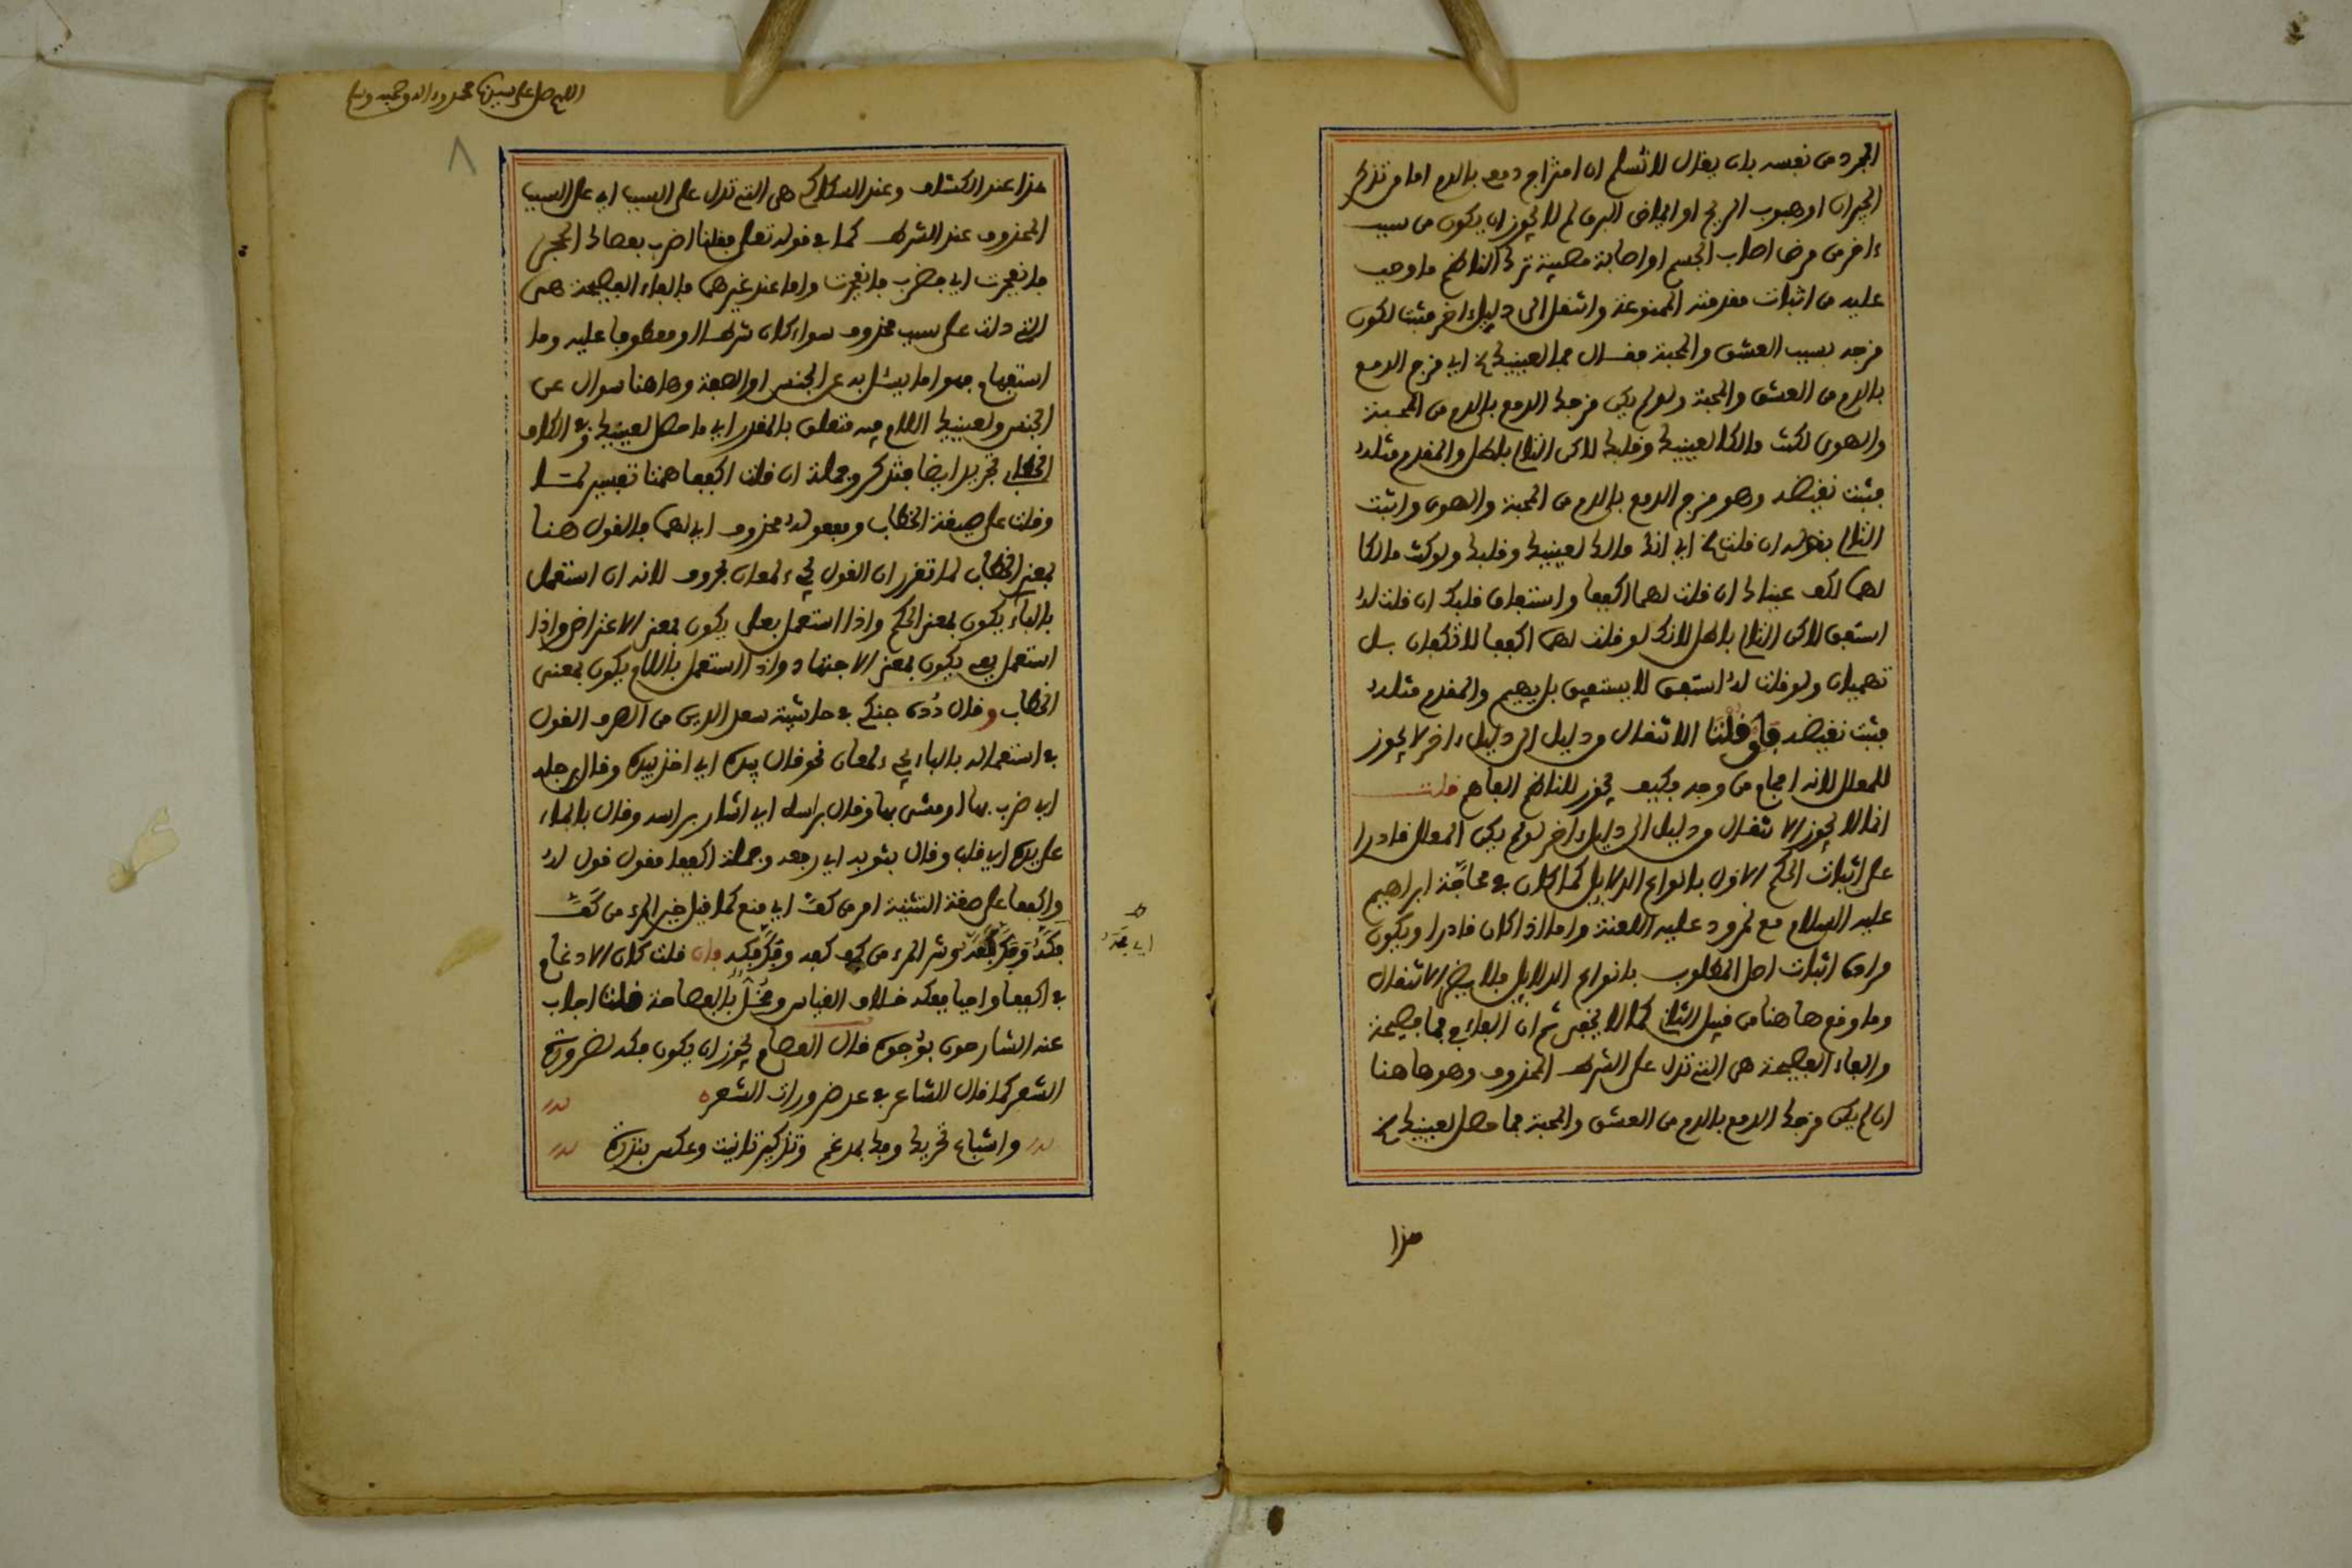 المجرد من نفسه بان يقال لا نسلم ان امتزاج دمع بالدم اما من تذكر
الجيران او هبوب الريح او ايماض البرق لم لا يجوز ان يكون من سبب
ءاخر من مرض اصاب الجسم او اصابة مصيبة ترك الناظم ما وجب
عليه من اثبات مقدمته الممنوعة وانتقل الى دليل ءاخر مثبت لكون
مزجه بسبب العشق والمحبة فقال فما لعينيك الخ اي مزج الدمع
بالدم من العشق والمحبة ولو لم يكن مزجك الدمع بالدم من المحبة
والهوى لكنت مالكا لعينيك وقلبك لاكن التالي باطل والمقدم مثله
فثبت نقيضه وهو مزج الدمع بالدم من المحبة والهوى واثبت
التالي بقوله ان قلت الخ اي انك مالك لعينيك وقلبك ولو كنت مالكا
لهما لكف عيناك ان قلت لهما اكففا واستفاق قلبك ان قلت له
استفق لاكن التالي باطل لانك لو قلت لهما اكففا لا تكفان بل
تهميان ولو قلت له استفق لا يستفيق بل يهيم والمقدم مثله
فثبت نقيضه فلو قلنا الانتقال من دليل الى دليل ءاخر لا يجوز
للمعلل لانه افحام من وجه فكيف يجوز للناظم الفاهم قلت
انما لا يجوز الانتقال من دليل الى دليل ءاخر لو لم يكن المعلل قادرا
على اثبات الحكم الاول بانواع الدلايل كما كان في محاجة ابراهيم
عليه السلام مع نمرود عليه اللعنة واما اذا كان قادرا ويكون
مراده اثبات اصل المطلوب بانواع الدلايل فلا يضر الانتقال
وما وقع هاهنا من قبيل الثاني كما لا يخفى ثم ان الفاء في فما فصيحة
والفاء الفصيحة هي التي تدل على الشرط المحذوف وهو هاهنا
ان لم يكن مزجك الدمع بالدم من العشق والمحبة فما حصل لعينيك الخ
هذا
اللهم صل على سيدنا محمد وءاله وصحبه وسلم
٨
هذا عند الكشاف وعند السكاكي هي التي تدل على السبب اي على السبب
المحذوف عند الشرط كما في قوله تعلى فقلنا اضرب بعصاك الحجر
فانفجرت اي فضرب فانفجرت واما عند غيرهما فالفاء الفصيحة هي
التي دلت على سبب محذوف سواء كان شرطا او معطوفا عليه وما
استفهام فهو اما يسئل به عن الجنس او الصفة وهاهنا سوال عن
الجنس ولعينيك اللام فيه متعلق بالمقدر اي ما حصل لعينيك وفي الكاف
الخطاب تجريد ايضا فتذكر وجملة ان قلت اكففا همتا تفسير لما
وقلت على صيغة الخطاب ومفعوله محذوف اي لهما فالقول هنا
بمعنى الخطاب لما تقرر ان القول يجيء لمعان بحروف لانه ان استعمل
بالباء يكون بمعنى الحكم واذا استعمل بعلى يكون بمعنى الاعتراض واذا
استعمل بفي يكون بمعنى الاجتهاد واذا استعمل باللام يكون بمعنى
الخطاب وقال دده جنكي في حاشية سعد الدين من الصرف القول
في استعماله بالباء يجيء لمعان نحو قال بيده اي اخذ بيده وقال برجله
اي ضرب بها او مشى بها وقال براسه اي اشار براسه وقال بالماء
على يده اي قلب وقال بثوبه اي رفعه وجملة اكففا مقول قول له
واكففا على صيغة التثنية امر من كف اي منع كما قيل خير المرء من كف
وشر المرء من فان قلت كان الادغام
في اكففا واجبا ففكه خلاف القياس ومخل بالفصاحة قلنا اجاب
عنه الشارحون بوجوه قال العصام يجوز ان يكون فكه لضرورة
الشعر كما قال الشاعر في عد ضرورات الشعر
واشباع تحريك وفك لمدغم وتذكير تانيث وعكس بندرة